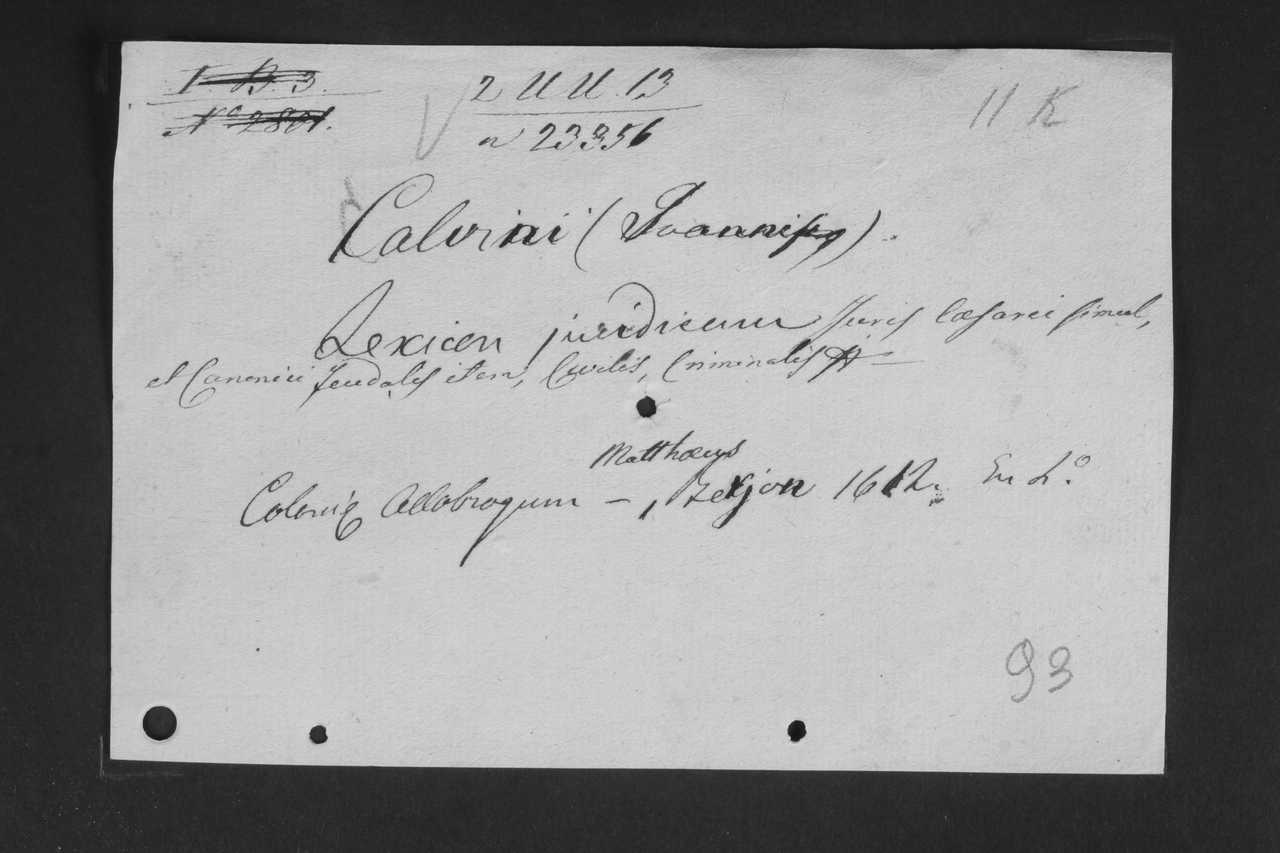 I. B. 3.
2 UU. 13
11 K
Nº 2801.
n 23356
Calvini (Joannis)
Lexicon juridicum Juris Cæsarei simul,
et Canonici feudalis item, Civilis, Criminalis
Matthæus
Coloniæ Allobrogum – 1612. In
93